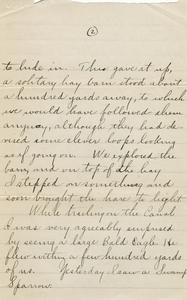 (2)
to hide in. This gave it up,
a solitary hay barn stood about
a hundred yards away, to which
we would have followed them
anyway, although they had de-
vised some clever loops looking
as if going on. We explored the
barn, and on top of the hay
I stepped on something and
soon brought the hare to light.
While trailing on the Canal
I was very agreeably surprised
by seeing a large Bald Eagle. He
flew within a few hundred yards
of us. Yesterday I saw a Swamp
Sparrow.